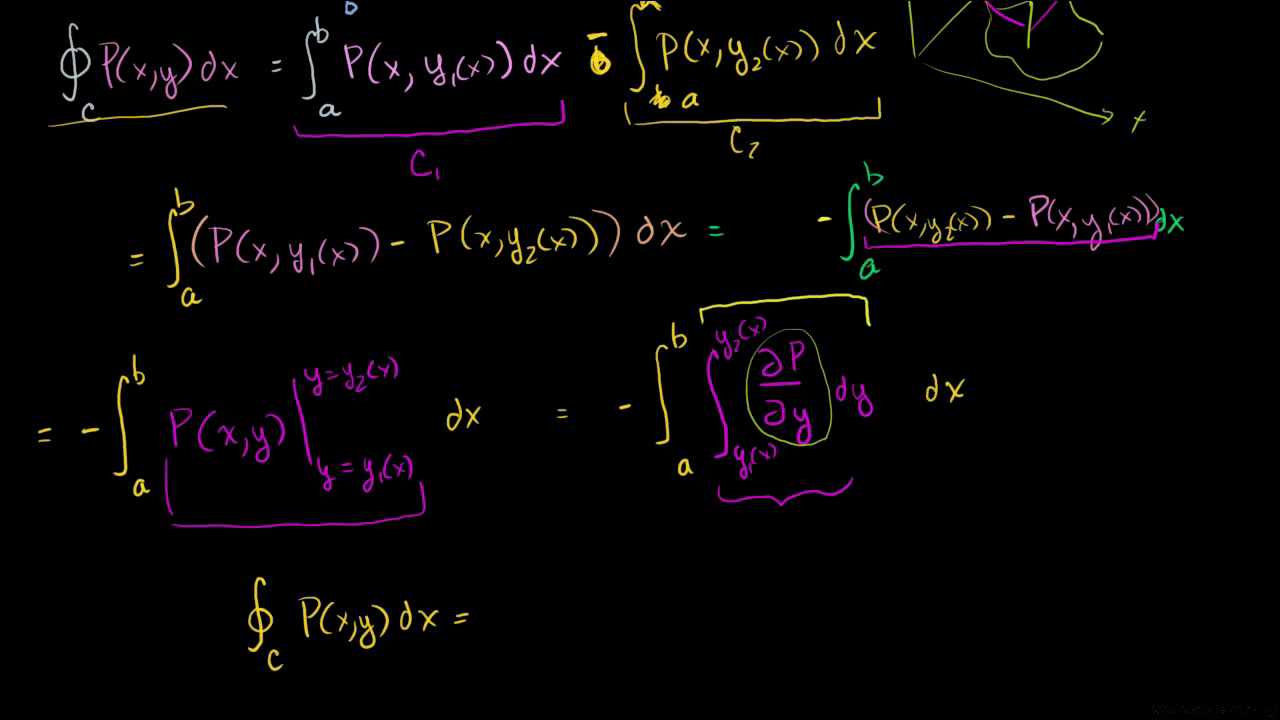 b
∮_C P(x,y) dx = ∫_a^b P(x, y₁(x)) dx − ∫_a P(x, y₂(x)) dx
x
C₁ C₂
= ∫_a^b (P(x, y₁(x)) − P(x, y₂(x))) dx = − ∫_a^b (P(x, y₂(x)) − P(x, y₁(x))) dx
= − ∫_a^b P(x,y) |_{y = y₁(x)}^{y = y₂(x)} dx = − ∫_a^b ∫_{y₁(x)}^{y₂(x)} ∂P/∂y dy dx
∮_C P(x,y) dx =